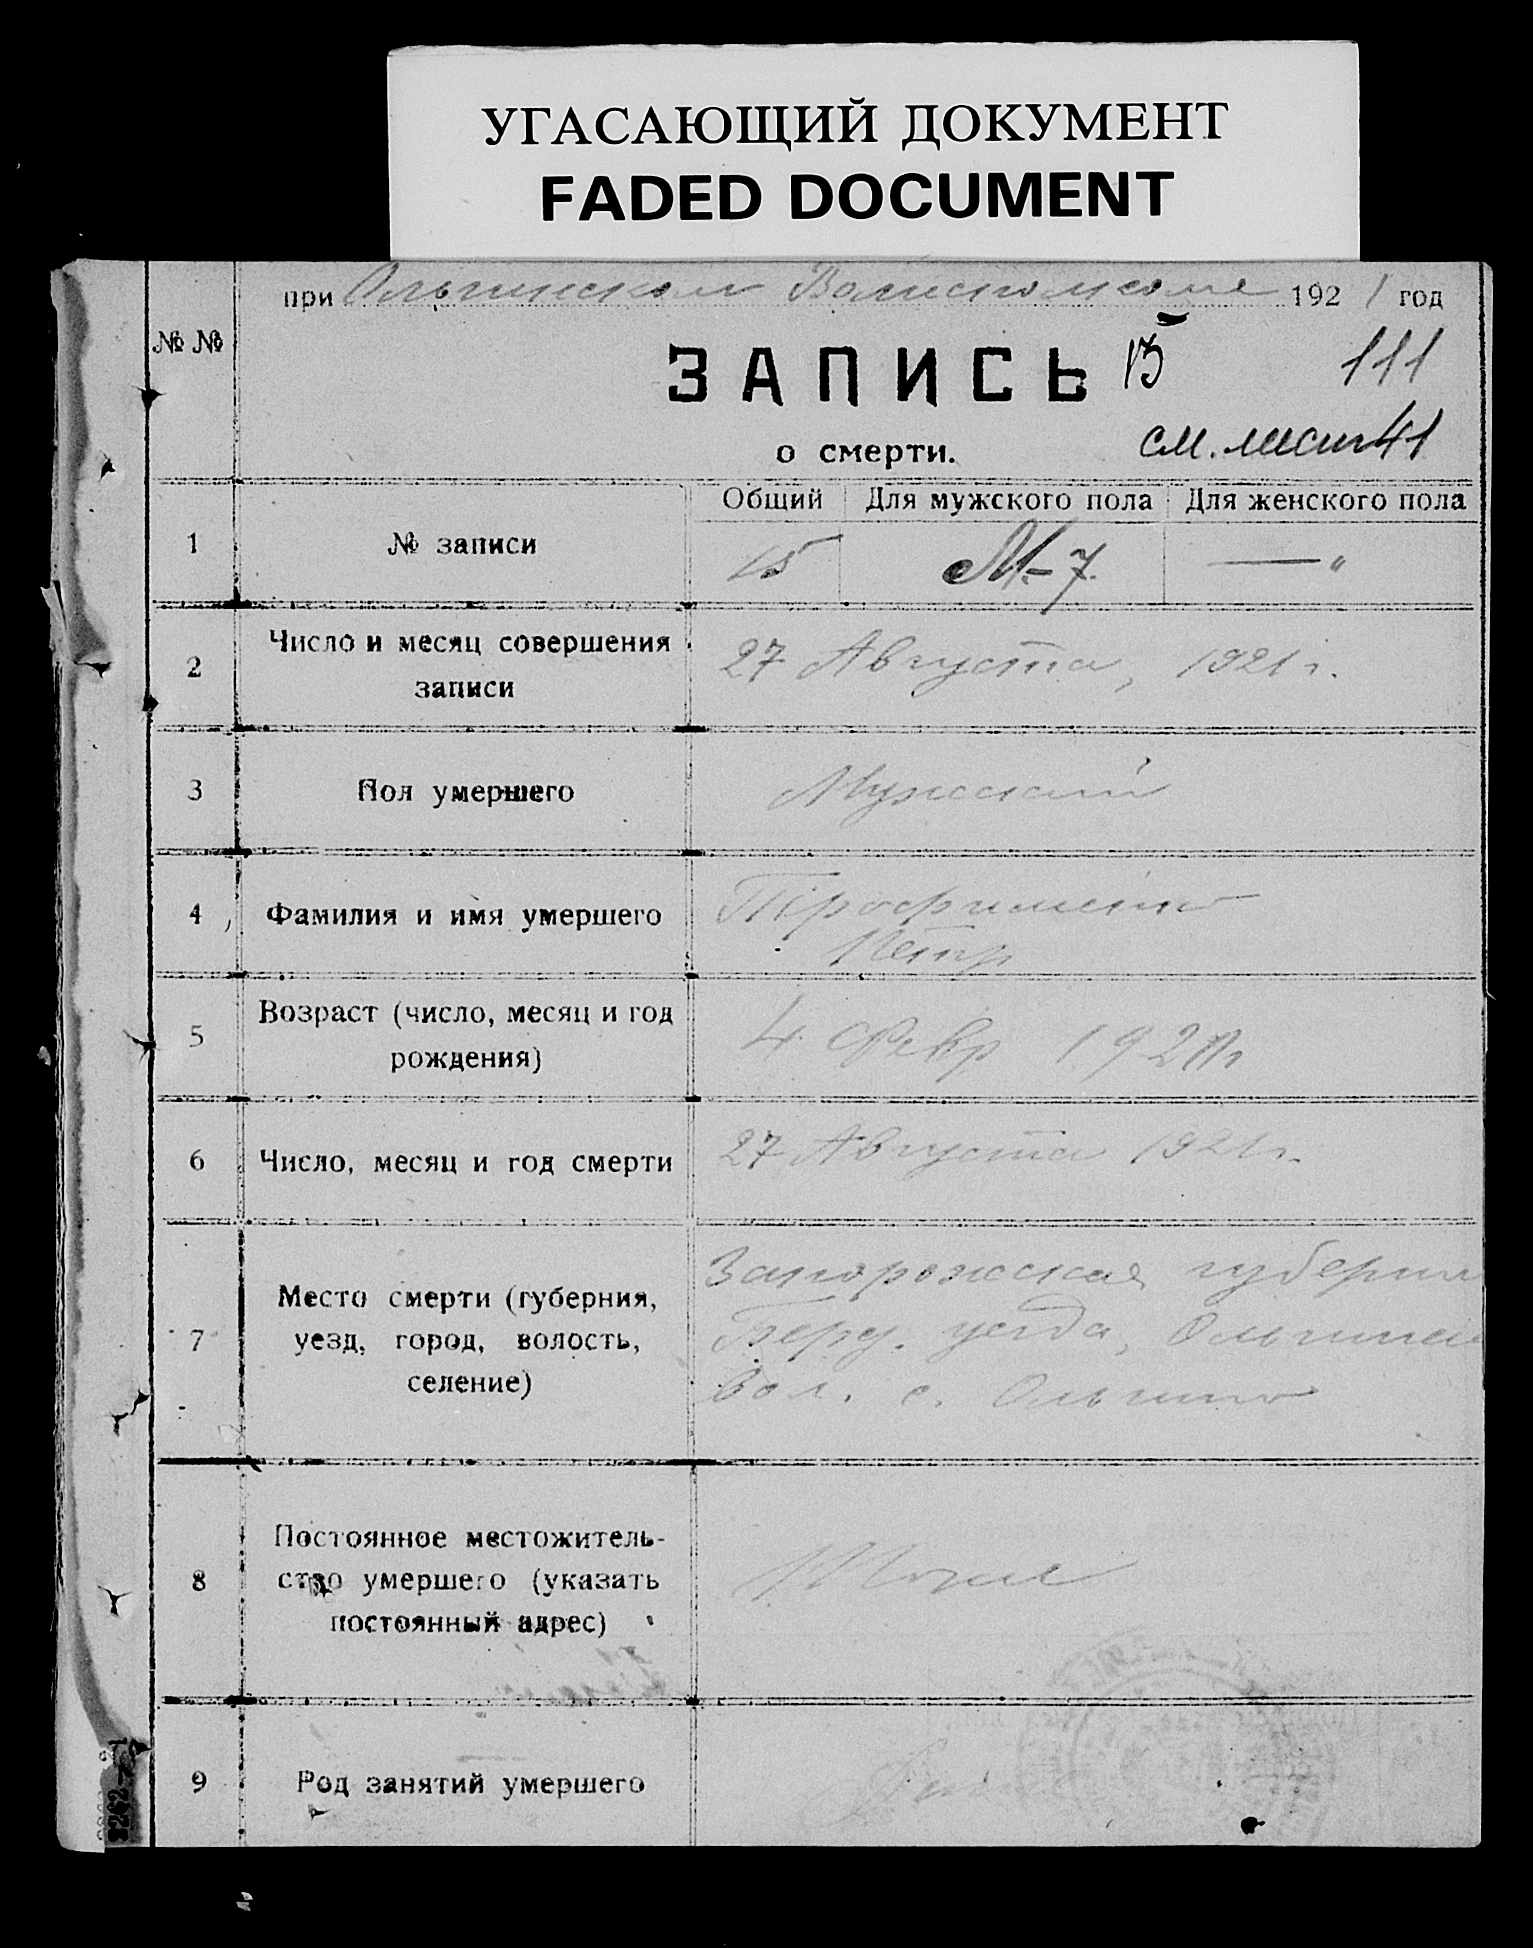 УГАСАЮЩИЙ ДОКУМЕНТ
FADED DOCUMENT
при Ольгинском Волисполкоме 1921 год
№ №
ЗАПИСЬ 13 111
о смерти. см. лист 41
Общий Для мужского пола Для женского пола
1 № записи 15 М-7. — "
2 Число и месяц совершения записи 27 Августа, 1921 г.
3 Пол умершего Мужской
4 Фамилия и имя умершего Трофименко
Петр
5 Возраст (число, месяц и год рождения) 4 Февр 1921 г
6 Число, месяц и год смерти 27 Августа 1921 г.
7 Место смерти (губерния, уезд, город, волость, селение) Запорожская губерния
Берд. уезда, Ольгинск
вол. с. Ольгино
8 Постоянное местожитель-
ство умершего (указать
постоянный адрес) Тоже
9 Род занятий умершего